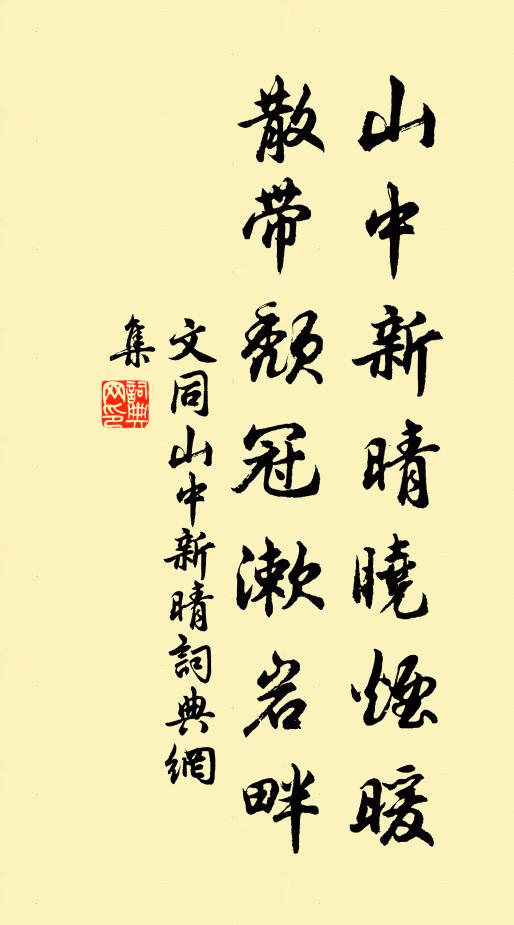 山中新晴曉煙暖
散带頽冠漱岩畔
文同山中新晴詞典網
集
詞典
网印